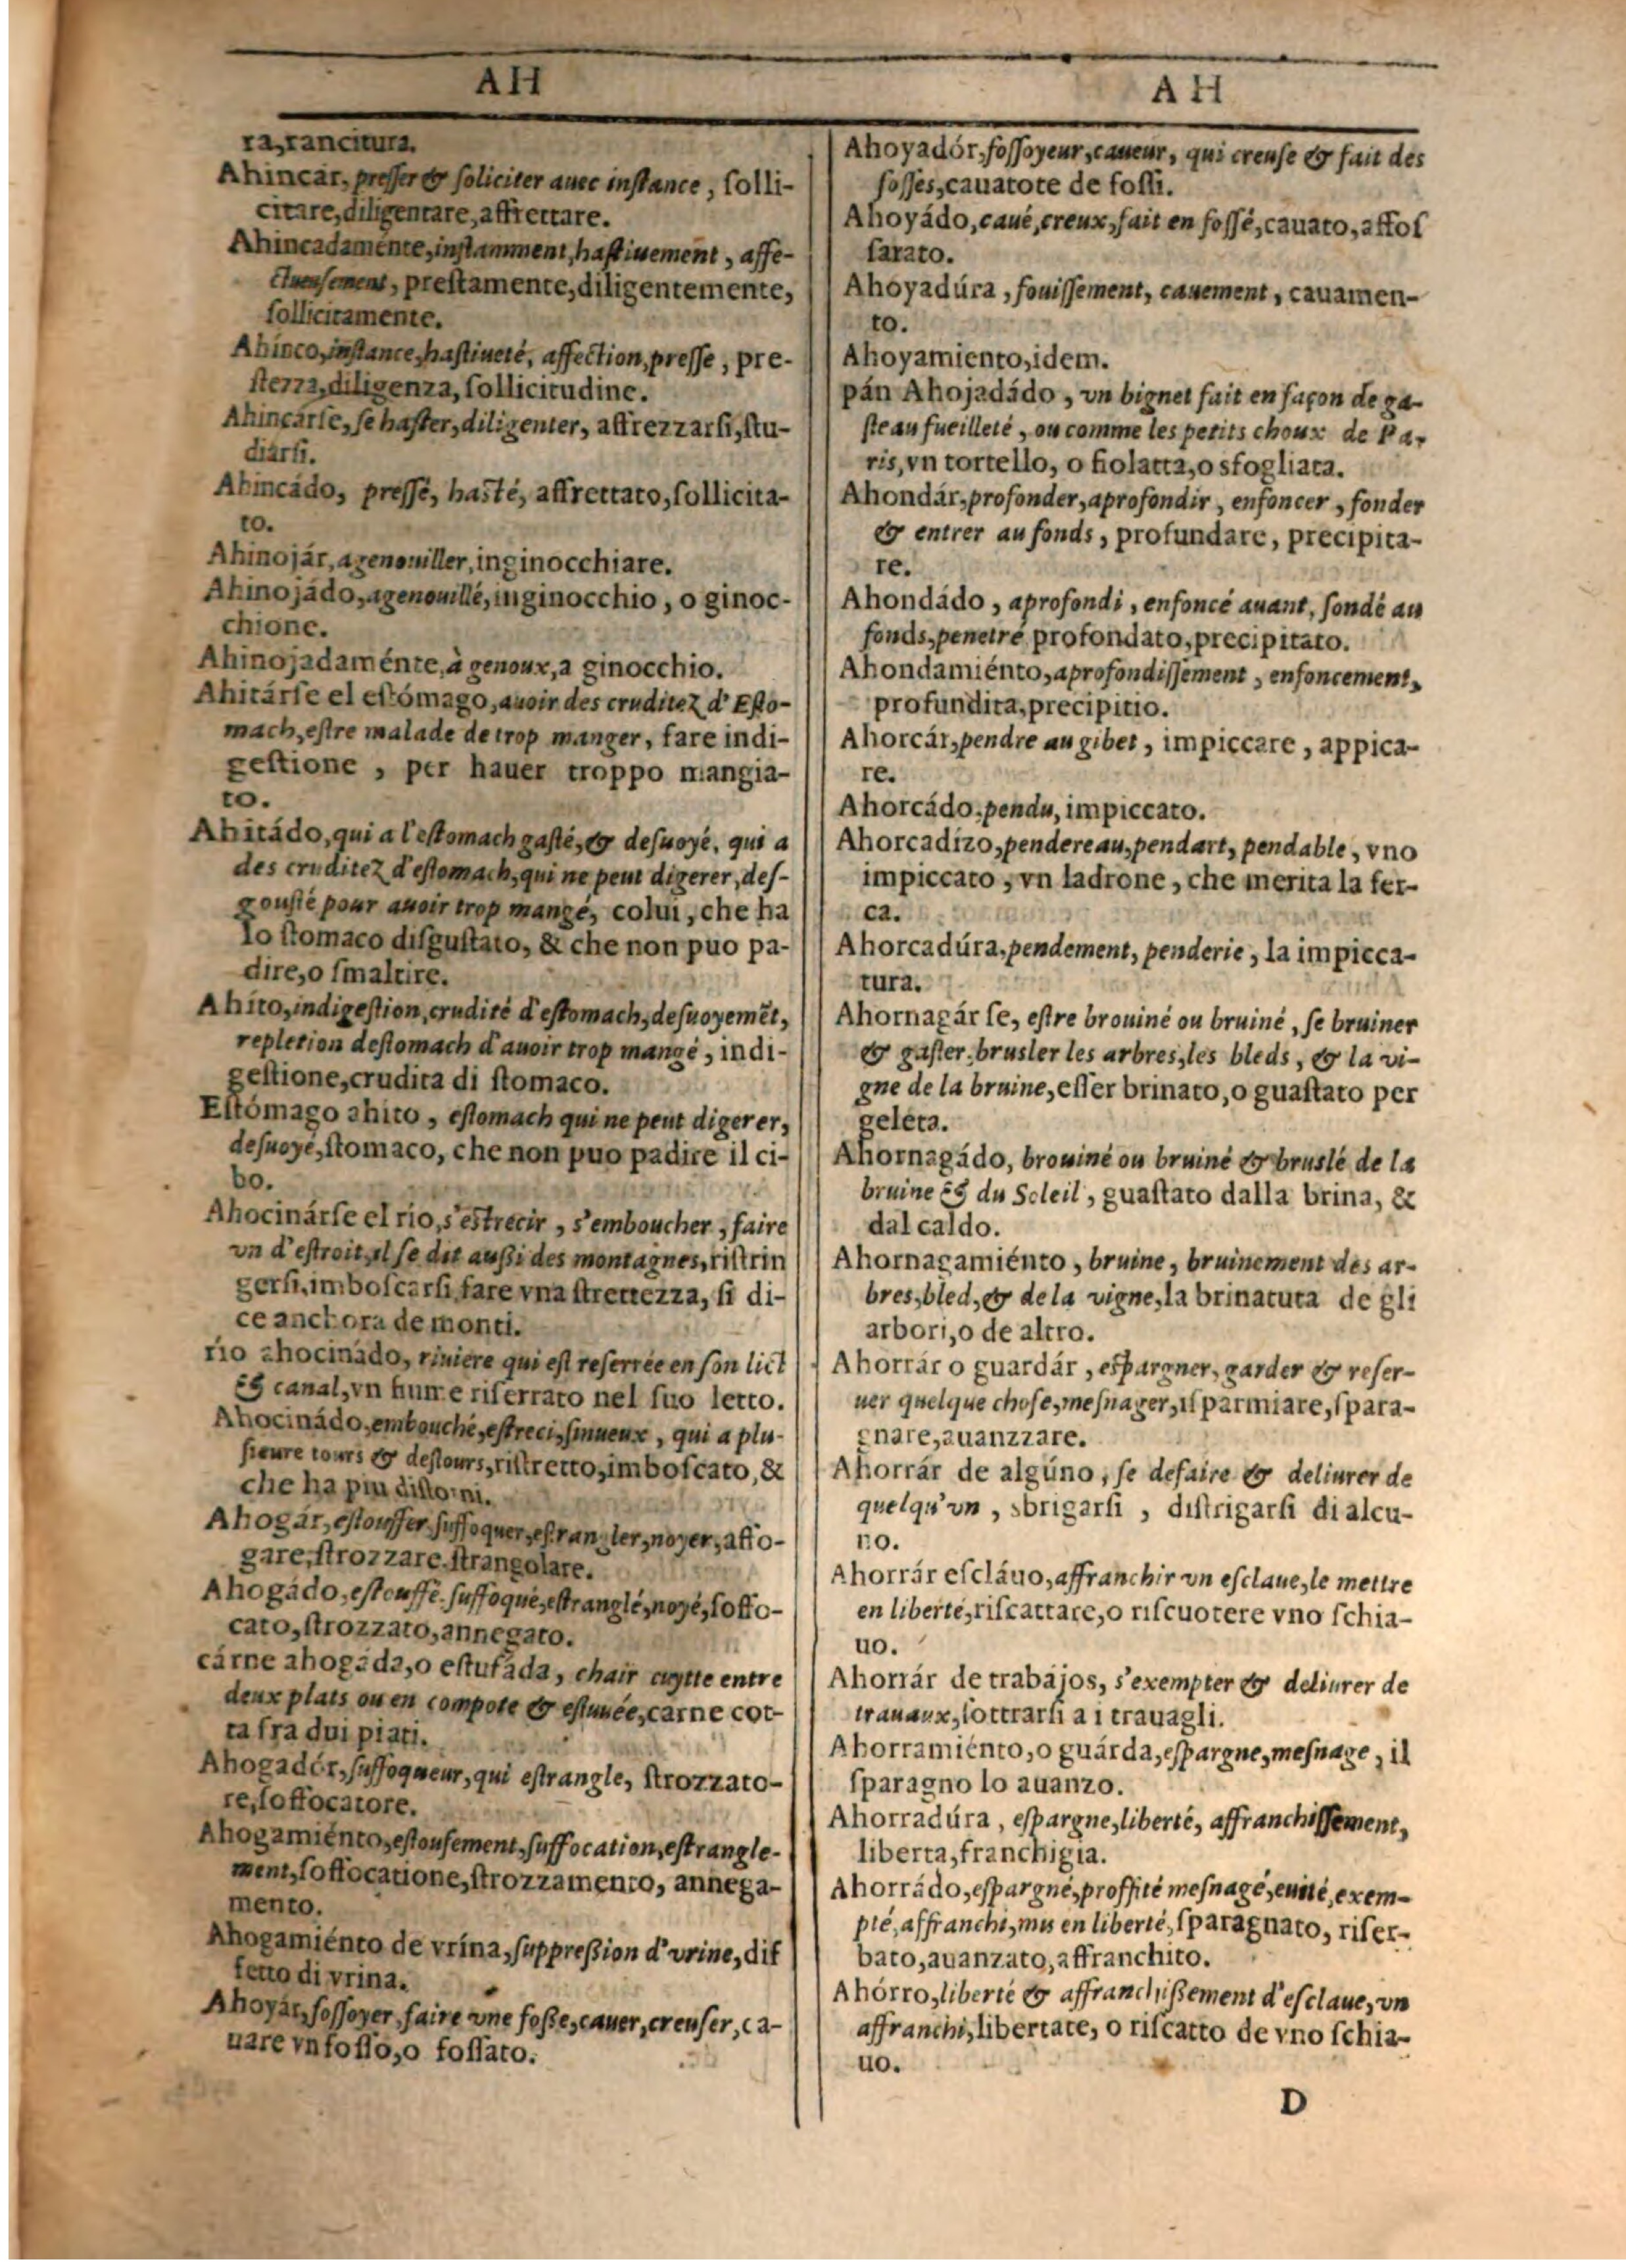 AH
ra,rancitura.
Ahincár, presser & soliciter auec instance, solli-
citare,diligentare,affrettare.
Ahincadaménte,instamment,hastiuement, affe-
ctueusement, prestamente,diligentemente,
sollicitamente.
Ahínco,instance,hastiueté, affection,presse, pre-
stezza,diligenza, sollicitudine.
Ahincárse,se haster,diligenter, affrezzarsi,stu-
diarsi.
Ahincádo, pressé, hasté, affrettato,sollicita-
to.
Ahinojár,agenouiller,inginocchiare.
Ahinojádo,agenouillé,inginocchio, o ginoc-
chione.
Ahinojadaménte,à genoux,a ginocchio.
Ahitárse el estómago,auoir des cruditez d'Esto-
mach,estre malade de trop manger, fare indi-
gestione, per hauer troppo mangia-
to.
Ahitádo,qui a l'estomach gasté,& desuoyé, qui a
des cruditez d'estomach,qui ne peut digerer,des-
gousté pour auoir trop mangé, colui,che ha
lo stomaco disgustato, & che non puo pa-
dire,o smaltire.
Ahíto,indigestion,crudité d'estomach,desuoyemẽt,
repletion destomach d'auoir trop mangé, indi-
gestione,crudita di stomaco.
Estómago ahito, estomach qui ne peut digerer,
desuoyé,stomaco, che non puo padire il ci-
bo.
Ahocinárse el río,s'estrecir, s'emboucher, faire
vn d'estroit,il se dit außi des montagnes,ristrin
gersi,imboscarsi,fare vna strettezza, si di-
ce anchora de monti.
río ahocinádo, riuiere qui est reserrée en son lict
& canal,vn fiume riserrato nel suo letto.
Ahocinádo,embouché,estreci,sinueux, qui a plu-
sieure tours & destours,ristretto,imboscato,&
che ha piu distorni.
Ahogár,estouffer,suffoquer,estrangler,noyer,affo-
gare,strozzare,strangolare.
Ahogádo,estouffé,suffoqué,estranglé,noyé,soffo-
cato,strozzato,annegato.
cárne ahogáda,o estufáda, chair cuytte entre
deux plats ou en compote & estuuée,carne cot-
ta fra dui piati.
Ahogadór,suffoqueur,qui estrangle, strozzato-
re,soffocatore.
Ahogamiénto,estoufement,suffocation,estrangle-
ment,soffocatione,strozzamento, annega-
mento.
Ahogamiénto de vrína,suppreßion d'vrine,dif
fetto di vrina.
Ahoyár,fossoyer,faire vne foße,cauer,creuser,ca-
uare vn fosso,o fossato.
AH
Ahoyadór,fossoyeur,caueur, qui creuse & fait des
fosses,cauatote de fossi.
Ahoyádo,caué,creux,fait en fossé,cauato,affos
sarato.
Ahoyadúra, fouissement, cauement, cauamen-
to.
Ahoyamiento,idem.
pán Ahojadádo, vn bignet fait en façon de ga-
steau fueilleté, ou comme les petits choux de Pa-
ris,vn tortello, o fiolatta,o sfogliata.
Ahondár,profonder,aprofondir, enfoncer, fonder
& entrer au fonds, profundare, precipita-
re.
Ahondádo, aprofondi, enfoncé auant, sondé au
fonds,penetré profondato,precipitato.
Ahondamiénto,aprofondissement, enfoncement,
profundita,precipitio.
Ahorcár,pendre au gibet, impiccare, appica-
re.
Ahorcádo,pendu, impiccato.
Ahorcadízo,pendereau,pendart, pendable, vno
impiccato, vn ladrone, che merita la fer-
ca.
Ahorcadúra,pendement, penderie, la impicca-
tura.
Ahornagár se, estre brouiné ou bruiné, se bruiner
& gaster,brusler les arbres,les bleds, & la vi-
gne de la bruine,esser brinato,o guastato per
geleta.
Ahornagádo, brouiné ou bruiné & bruslé de la
bruine & du Soleil, guastato dalla brina, &
dal caldo.
Ahornagamiénto, bruine, bruinement des ar-
bres,bled,& de la vigne,la brinatuta de gli
arbori,o de altro.
Ahorrár o guardár, espargner, garder & reser-
uer quelque chose,mesnager,isparmiare,spara-
gnare,auanzzare.
Ahorrár de algúno, se defaire & deliurer de
quelqu'vn, sbrigarsi, distrigarsi di alcu-
no.
Ahorrár escláuo,affranchir vn esclaue,le mettre
en liberté,riscattare,o riscuotere vno schia-
uo.
Ahorrár de trabájos, s'exempter & deliurer de
trauaux,sottrarsi a i trauagli.
Ahorramiénto,o guárda,espargne,mesnage, il
sparagno lo auanzo.
Ahorradúra, espargne,liberté, affranchissement,
liberta,franchigia.
Ahorrádo,espargné,proffité mesnagé,euité,exem-
pté,affranchi,mis en liberté,sparagnato, riser-
bato,auanzato,affranchito.
Ahórro,liberté & affranchißement d'esclaue,vn
affranchi,libertate, o riscatto de vno schia-
uo.
D